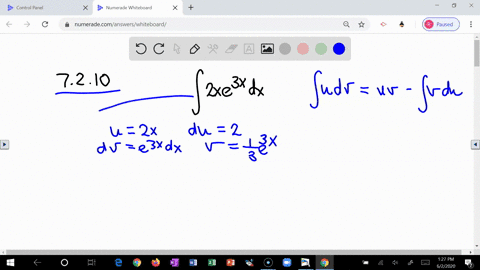 Control Panel
Numerade Whiteboard
numerade.com/answers/whiteboard/
Paused
A
7.2.10 ∫2xe^{3x}dx ∫udv = uv - ∫vdu
u = 2x du = 2
dv = e^{3x}dx v = 1/3 e^{3x}
1:27 PM
6/2/2020